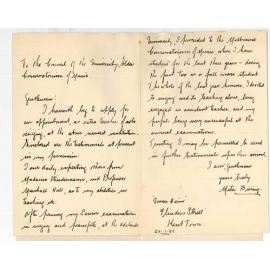 To the Council of the University, Elder
Conservatorium of Music.
Gentlemen:
I herewith beg to apply for
an appointment, as extra teacher of solo
singing, at the above named institution.
Enclosed are the testimonials at present
in my possession.
I am daily expecting others from
Madame and Professor
Marshall Hall, as to my abilities in
teaching etc.
After passing my Senior examination
in singing and pianoforte, at the Adelaide
University, I proceeded to the Melbourne
Conservatorium of Music, where I have
studied for the last three years - during
the first two as a full course student.
The whole of the last year, however, I devoted
to singing and its teaching alone, being
engaged as assistant teacher, and my
pupils being very successful at the
annual examinations.
Trusting I may be permitted to send
in further testimonials upon their arrival
I am Gentlemen
yours truly
Flinders Street
Kent Town.